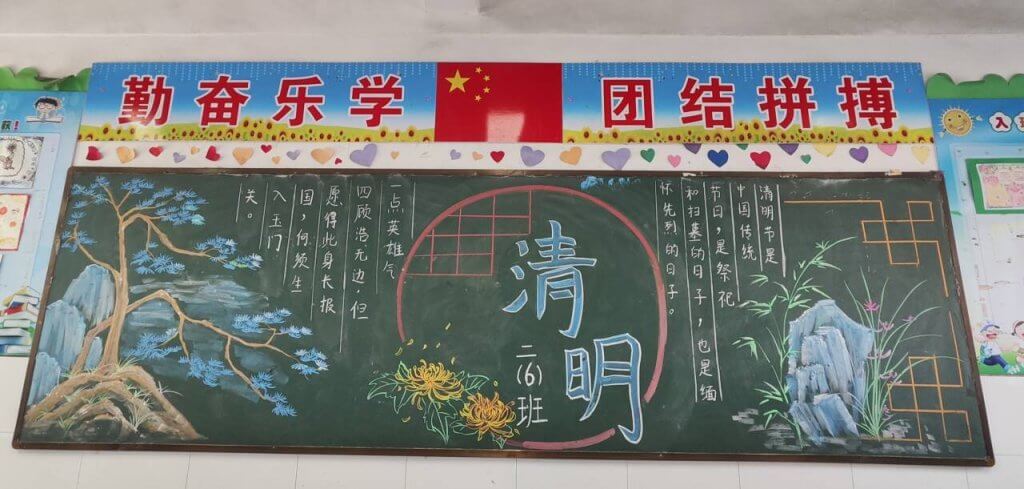 勤奋乐学
团结拼搏
清明节是
中国传统
节日，是祭祀
和扫墓的日子，也是缅
怀先烈的日子。
清明
二(6)班
一点英雄气
四顾浩无边，但
愿得此身长报
国，何须生
入玉门
关。